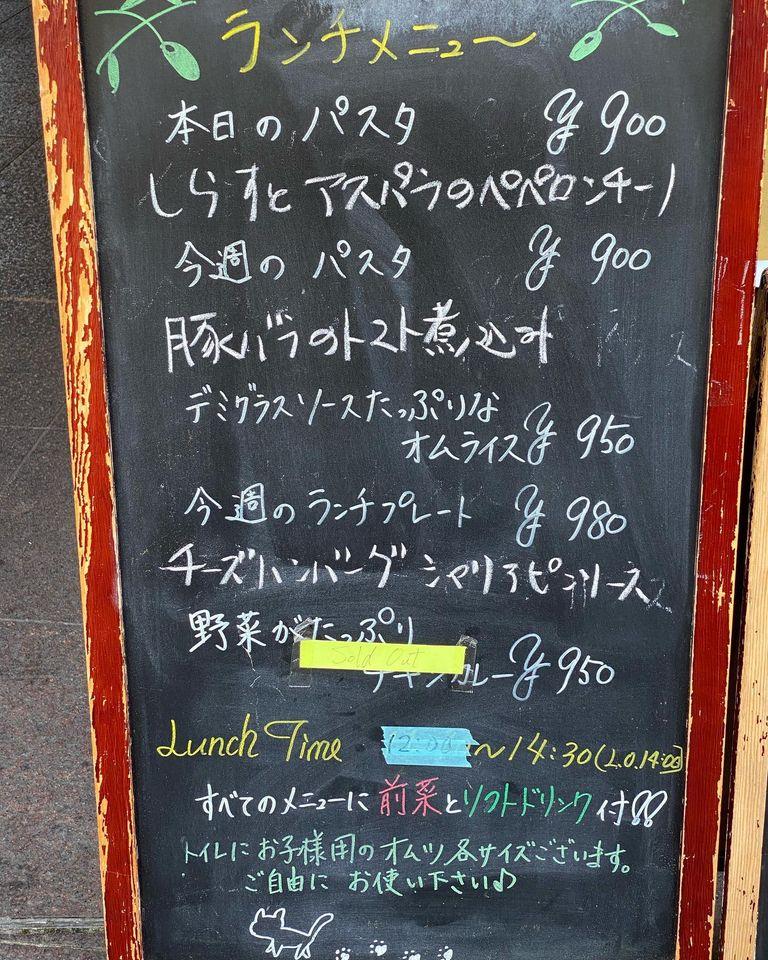 ランチメニュー
本日のパスタ ¥900
しらすとアスパラのペペロンチーノ
今週のパスタ ¥900
豚バラのトマト煮込み
デミグラスソースたっぷりな
オムライス ¥950
今週のランチプレート ¥980
チーズハンバーグ シャリアピンソース
野菜がたっぷり
Sold Out
チキンカレー ¥950
Lunch Time 12:00～14:30(L.O.14:00)
すべてのメニューに前菜とソフトドリンク付!!
トイレにお子様用のオムツ各サイズございます。
ご自由にお使い下さい♪